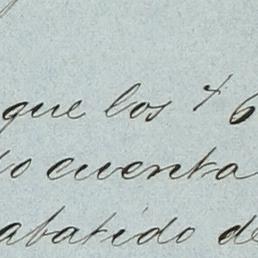 que los 4 6
lo cuenta
abatido de